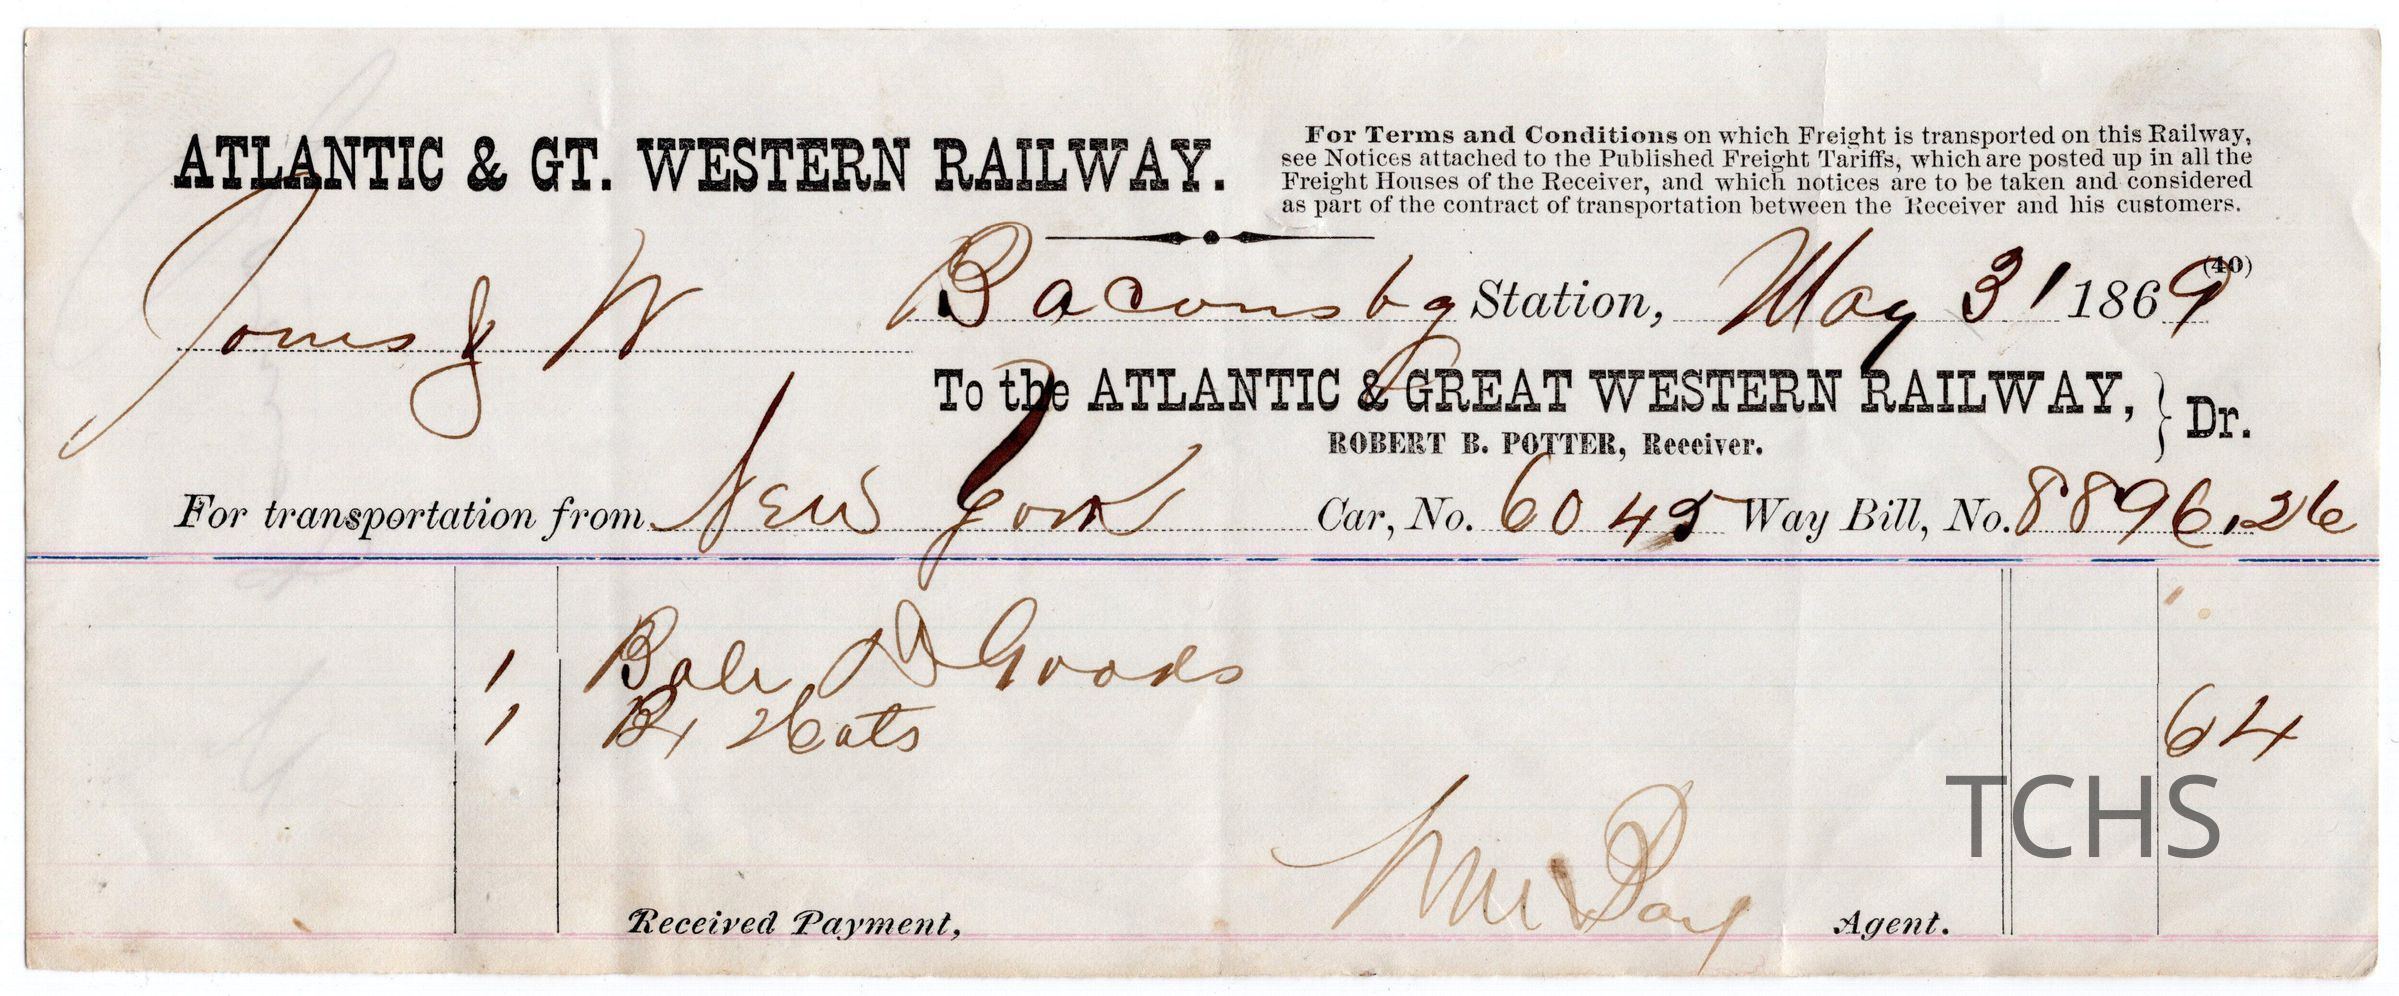 ATLANTIC & GT. WESTERN RAILWAY.
For Terms and Conditions on which Freight is transported on this Railway,
see Notices attached to the Published Freight Tariffs, which are posted up in all the
Freight Houses of the Receiver, and which notices are to be taken and considered
as part of the contract of transportation between the Receiver and his customers.
(40)
Baconsbg Station, May 31 1869
Jones & W
To the ATLANTIC & GREAT WESTERN RAILWAY, } Dr.
ROBERT B. POTTER, Receiver.
For transportation from New York Car, No. 6045 Way Bill, No. 8896.26
1 Bale D Goods
1 Bx Hats 64
TCHS
Received Payment, Wm Day Agent.